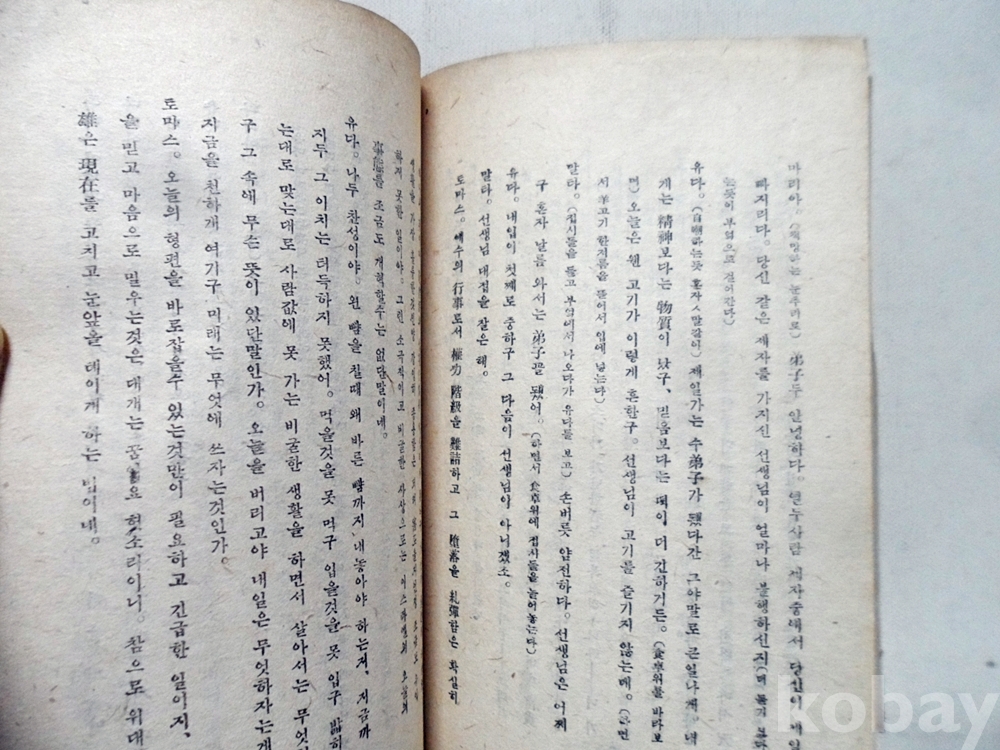 마리아。(책망하는 눈추리로) 弟子두 안녕하다。 열두사람 제자중에서 당신이 제일
빠지리다。 당신 같은 제자를 가지신 선생님이 얼마나 불행하신지
는듯이 부엌으로 걸어간다)
유다。(自嘲하는듯 혼자ㅅ말같이) 제일가는 수弟子가 됐다간 그야말로 큰일나게。 내
게는 精神보다는 物質이 낫구、 믿음보다는 떡이 더 간하거든。(食卓위를 바라보
면) 오늘은 웬 고기가 이렇게 흔한구。 선생님이 고기를 즐기지 않는데。(하면
서 羊고기 한저름을 뜯어서 입에 넣는다)
말타。(접시들을 들고 부엌에서 나오다가 유다를 보고) 손버릇 얌전하다。 선생님은 어쩌
구 혼자 날름 와서는 弟子꼴 됐어。(하면서 食卓위에 접시들을 늘어놓는다)
유다。 내입이 첫째로 중하구 그 다음이 선생님이 아니겠소。
말타。 선생님 대접을 잘은 해。
도마스。 예수의 行事로서 權力 階級을 難詰하고 그 墮落을 糺彈함은 확실히
하지 못한 일이야。 그런 소극적이고 비굴한 사상으로는 이스라엘의 오늘의
事態를 조금도 개혁할수는 없단말이네。
유다。 나두 찬성이야。 왼 뺨을 칠때 왜 바른 뺨까지 내놓아야 하는지、 저금까
지두 그 이치는 터득하지 못했어。 먹을것을 못 먹구 입을것을 못 입구 밟히
는대로 맞는대로 사람값에 못 가는 비굴한 생활을 하면서 살아서는 무엇
구 그 속에 무슨 뜻이 있단말인가。 오늘을 버리고야 내일은 무엇하자는게
지금을 천하개 여기구 미래는 무엇에 쓰자는것인가。
도마스。 오늘의 형편을 바로잡을수 있는것만이 필요하고 긴급한 일이지、
을 믿고 마음으로 밀우는것은 대개는 꿈이요 헛소리이니。 참으로 위대
雄은 現在를 고치고 눈앞을 태이게 하는 법이네。